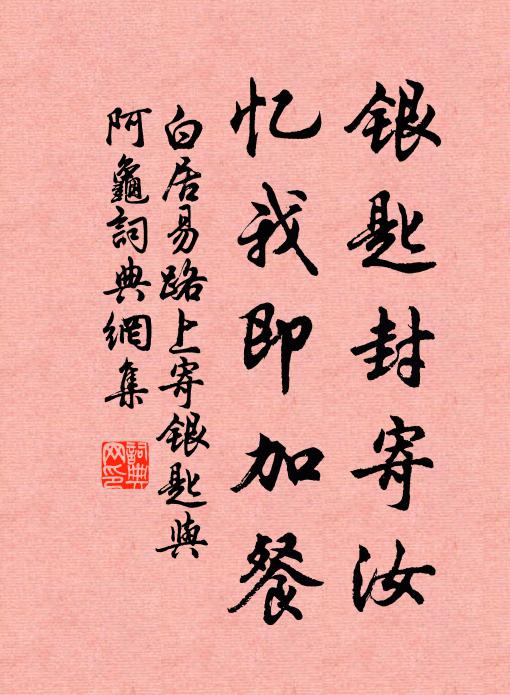 银匙封寄汝
忆我即加餐
白居易路上寄银匙與
阿龜詞典網集
詞典
网印